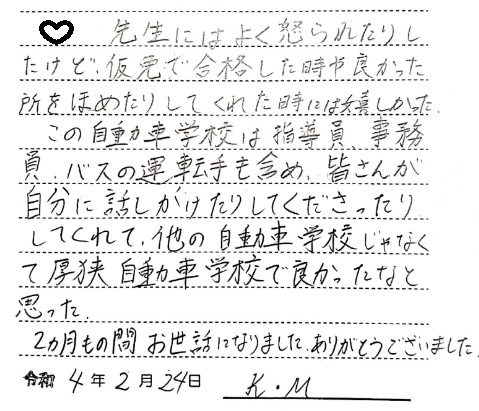 ♡ 先生にはよく怒られたりし
たけど、仮免で合格した時や良かった
所をほめたりしてくれた時には嬉しかった。
この自動車学校は指導員、事務
員、バスの運転手も含め、皆さんが
自分に話しかけたりしてくださったり
してくれて、他の自動車学校じゃなく
て厚狭自動車学校で良かったなと
思った。
2カ月もの間お世話になりました。ありがとうございました。
令和 4年2月24日 K・M